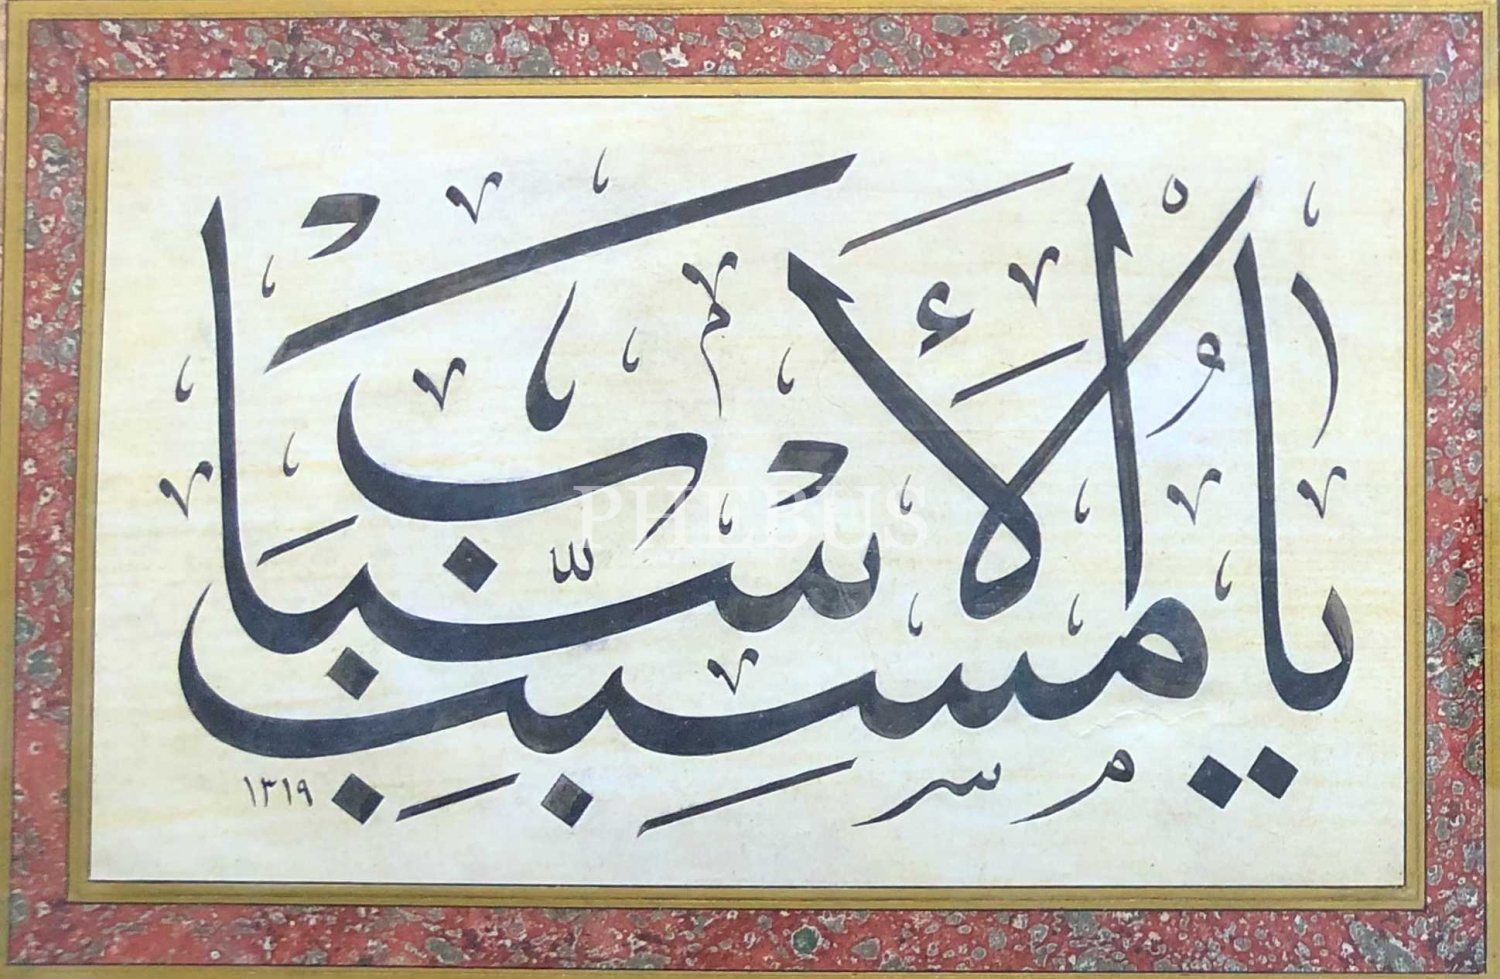 يا مُسَبِّبَ الْأَسْبَابِ
١٣١٩
PHEBUS